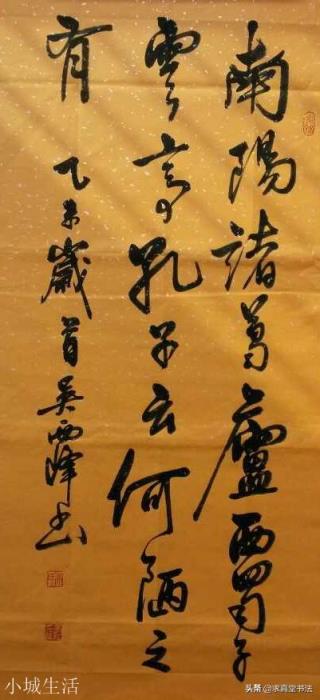 南陽諸葛廬西蜀子
雲亭孔子云何陋之
有
乙未歲首吴西峰书
小城生活
头条@求真堂书法